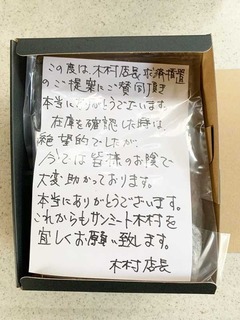 この度は、木村店長救済措置
のご提案にご賛同頂き
本当にありがとうございます。
在庫を確認した時は
絶望的でしたが、
今では皆様のお陰で
大変助かっております。
本当にありがとうございます。
これからもサンミート木村を
宜しくお願い致します。
木村店長